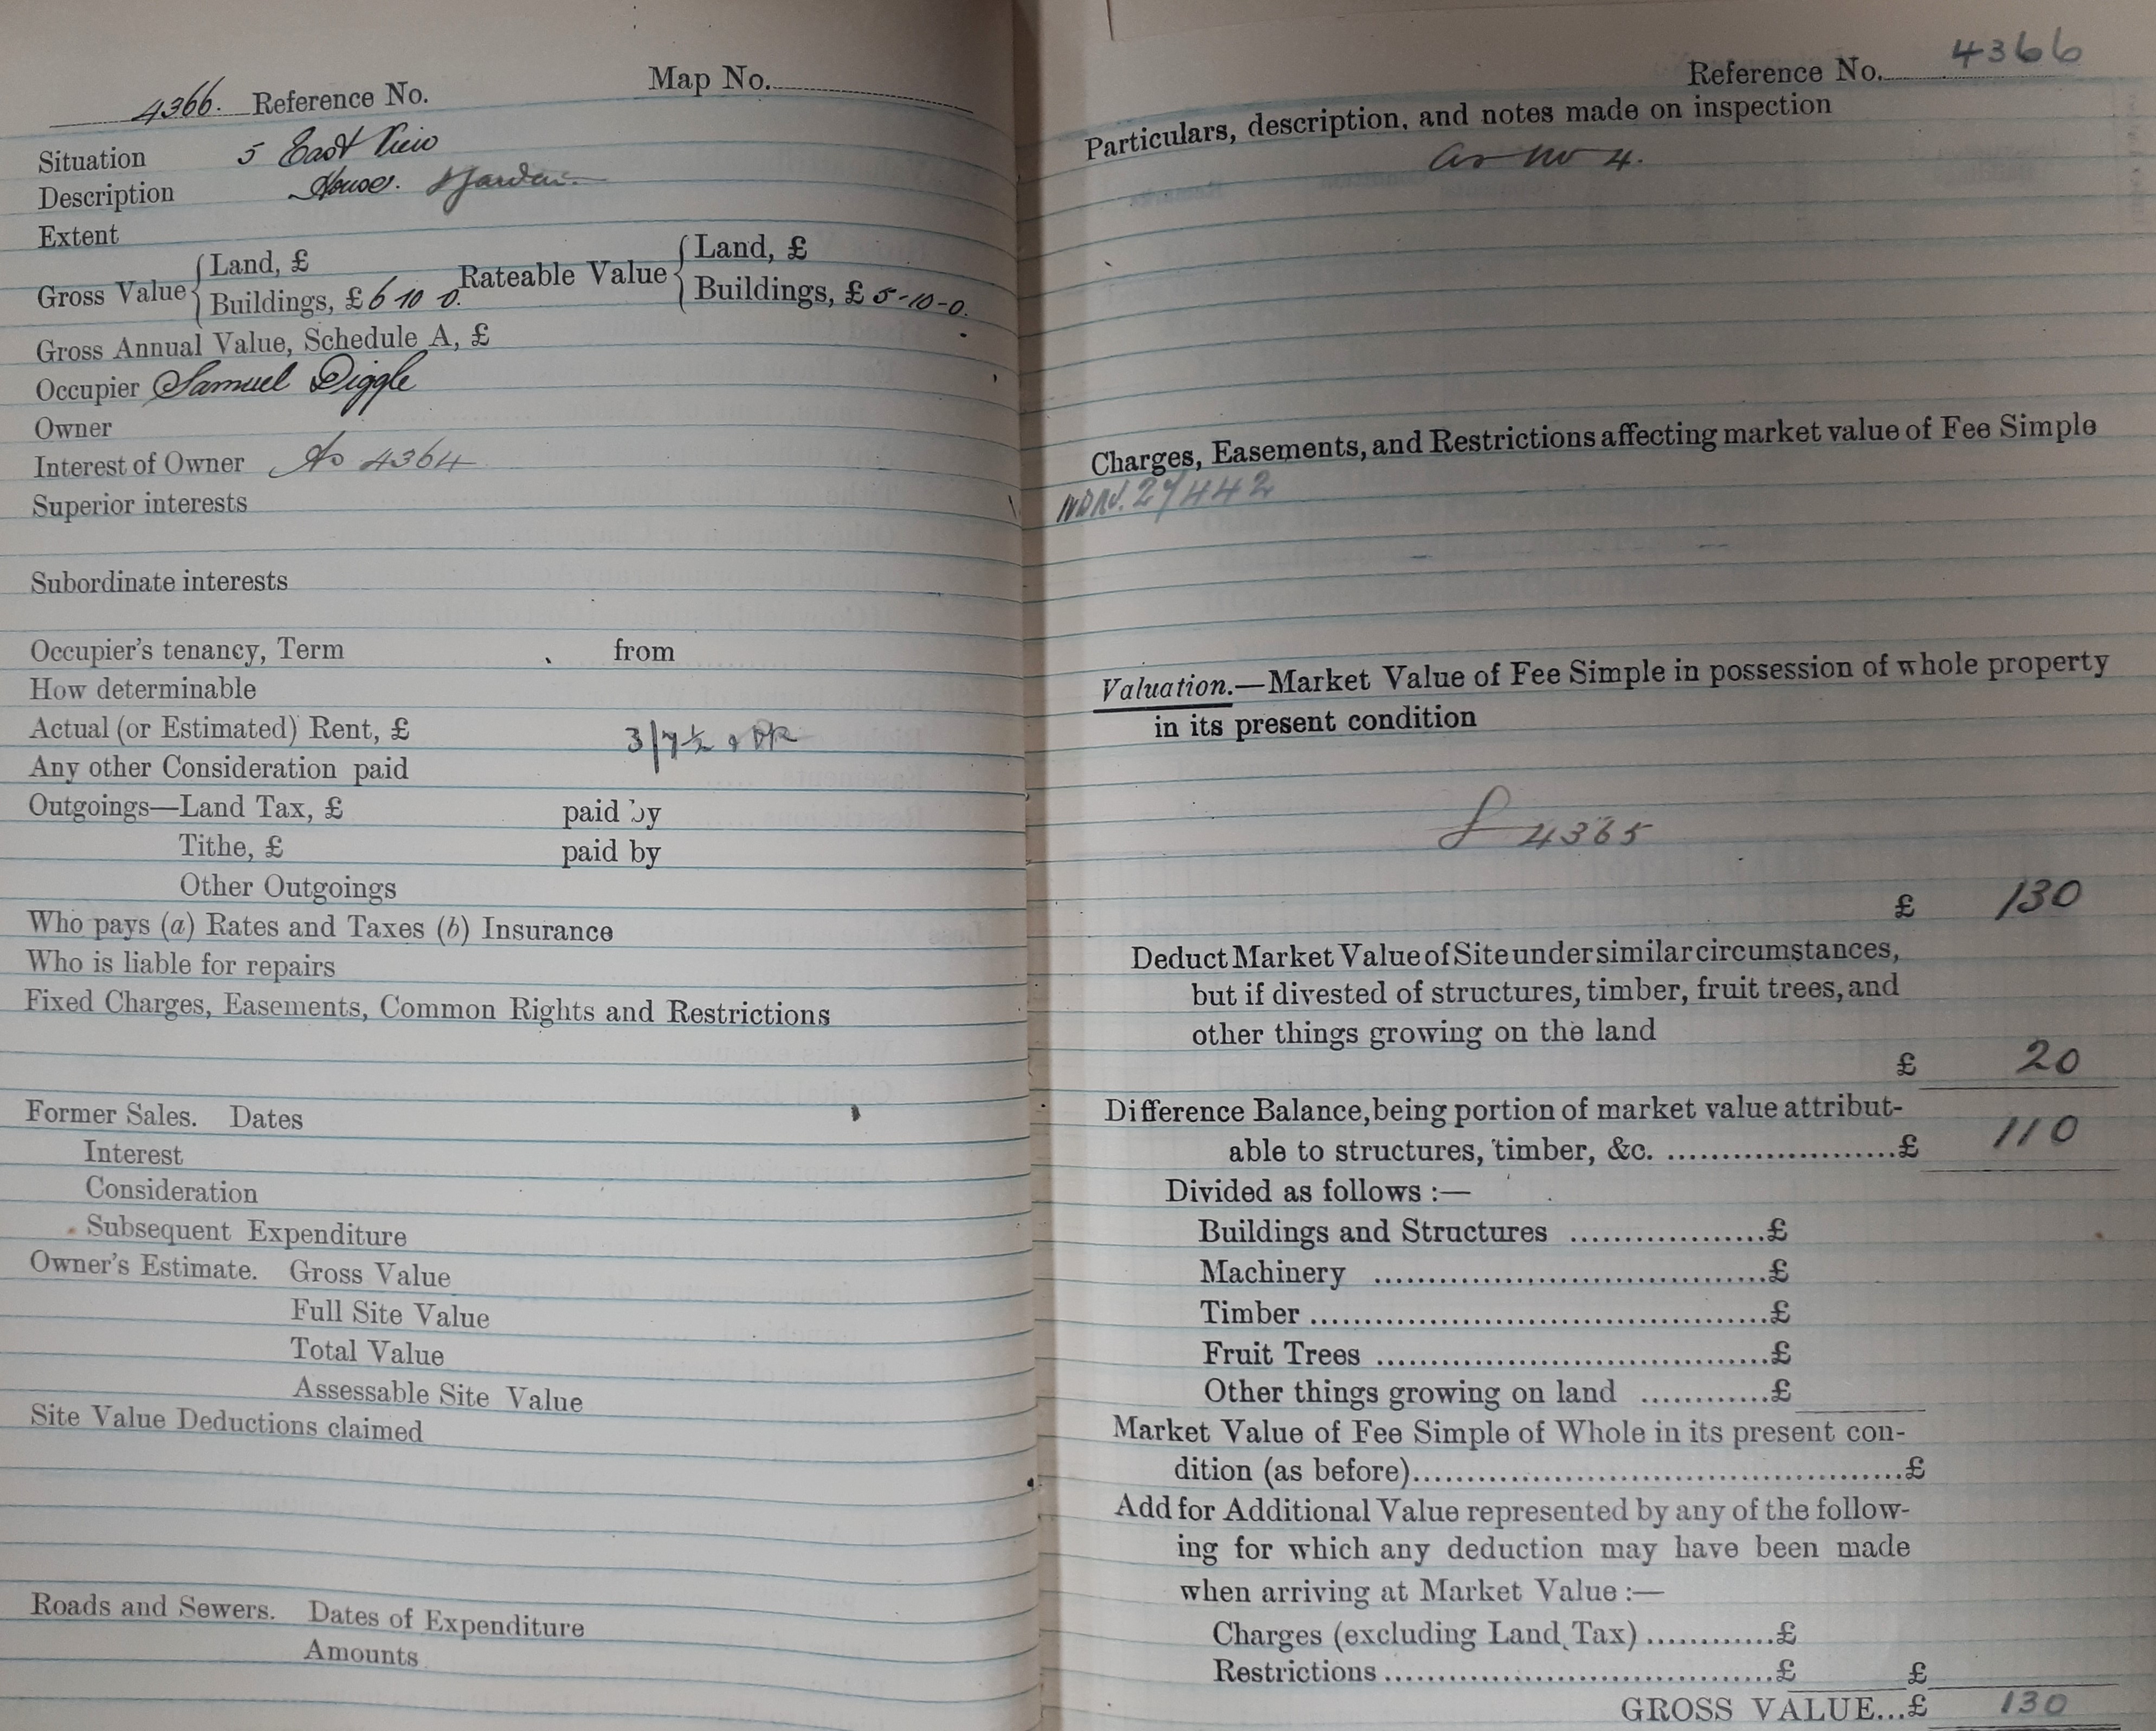 4366. Reference No. Map No.
Situation 5 East View
Description House. & Garden.
Extent
Gross Value { Land, £
Buildings, £ 6-10-0. Rateable Value { Land, £
Buildings, £ 5-10-0.
Gross Annual Value, Schedule A, £
Occupier Samuel Diggle
Owner
Interest of Owner As 4364
Superior interests
Subordinate interests
Occupier's tenancy, Term from
How determinable
Actual (or Estimated) Rent, £ 3/7½
Any other Consideration paid
Outgoings—Land Tax, £ paid by
Tithe, £ paid by
Other Outgoings
Who pays (a) Rates and Taxes (b) Insurance
Who is liable for repairs
Fixed Charges, Easements, Common Rights and Restrictions
Former Sales. Dates
Interest
Consideration
Subsequent Expenditure
Owner's Estimate. Gross Value
Full Site Value
Total Value
Assessable Site Value
Site Value Deductions claimed
Roads and Sewers. Dates of Expenditure
Amounts
Reference No. 4366
Particulars, description, and notes made on inspection
as no 4.
Charges, Easements, and Restrictions affecting market value of Fee Simple
27442
Valuation.—Market Value of Fee Simple in possession of whole property
in its present condition
4365
£ 130
Deduct Market Value of Site under similar circumstances,
but if divested of structures, timber, fruit trees, and
other things growing on the land
£ 20
Difference Balance, being portion of market value attribut-
able to structures, timber, &c. .....................£ 110
Divided as follows :—
Buildings and Structures ..................£
Machinery ....................................£
Timber ..........................................£
Fruit Trees ....................................£
Other things growing on land ............£
Market Value of Fee Simple of Whole in its present con-
dition (as before)..............................................£
Add for Additional Value represented by any of the follow-
ing for which any deduction may have been made
when arriving at Market Value :—
Charges (excluding Land Tax) ............£
Restrictions ......................................£ £
GROSS VALUE...£ 130